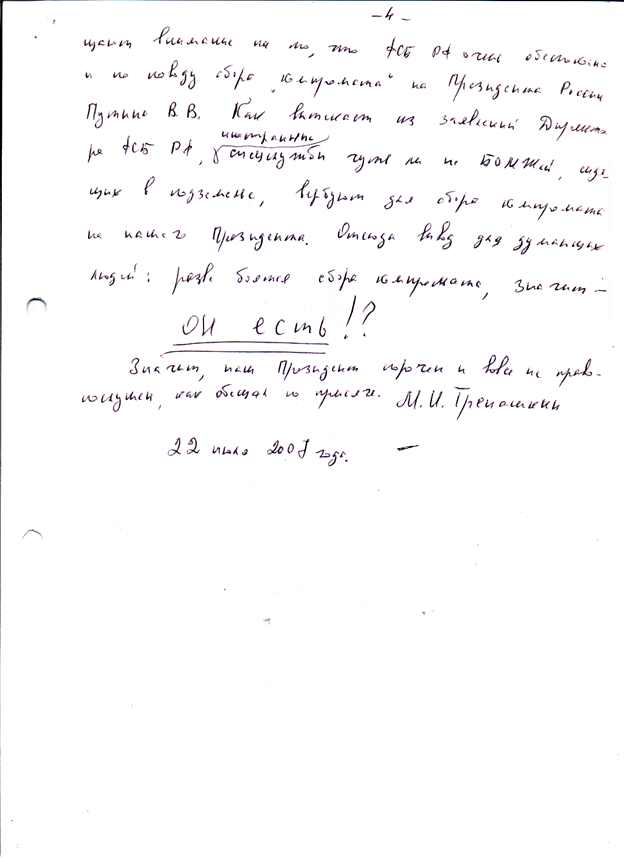 – 4 –
щают внимание на то, что ФСБ РФ очень обеспокоено
и по поводу сбора „компромата“ на Президента России
Путина В.В. Как вытекает из заявлений Директо-
ра ФСБ РФ, иностранные спецслужбы чуть ли не БОМЖей, сидя-
щих в подземелье, вербуют для сбора компромата
на нашего Президента. Отсюда вывод для думающих
людей: разве боятся сбора компромата, значит –
ОН ЕСТЬ!?
Значит, наш Президент порочен и вовсе не право-
послушен, как обещал по присяге. М.И. Трепашкин
22 июля 2007 года. –